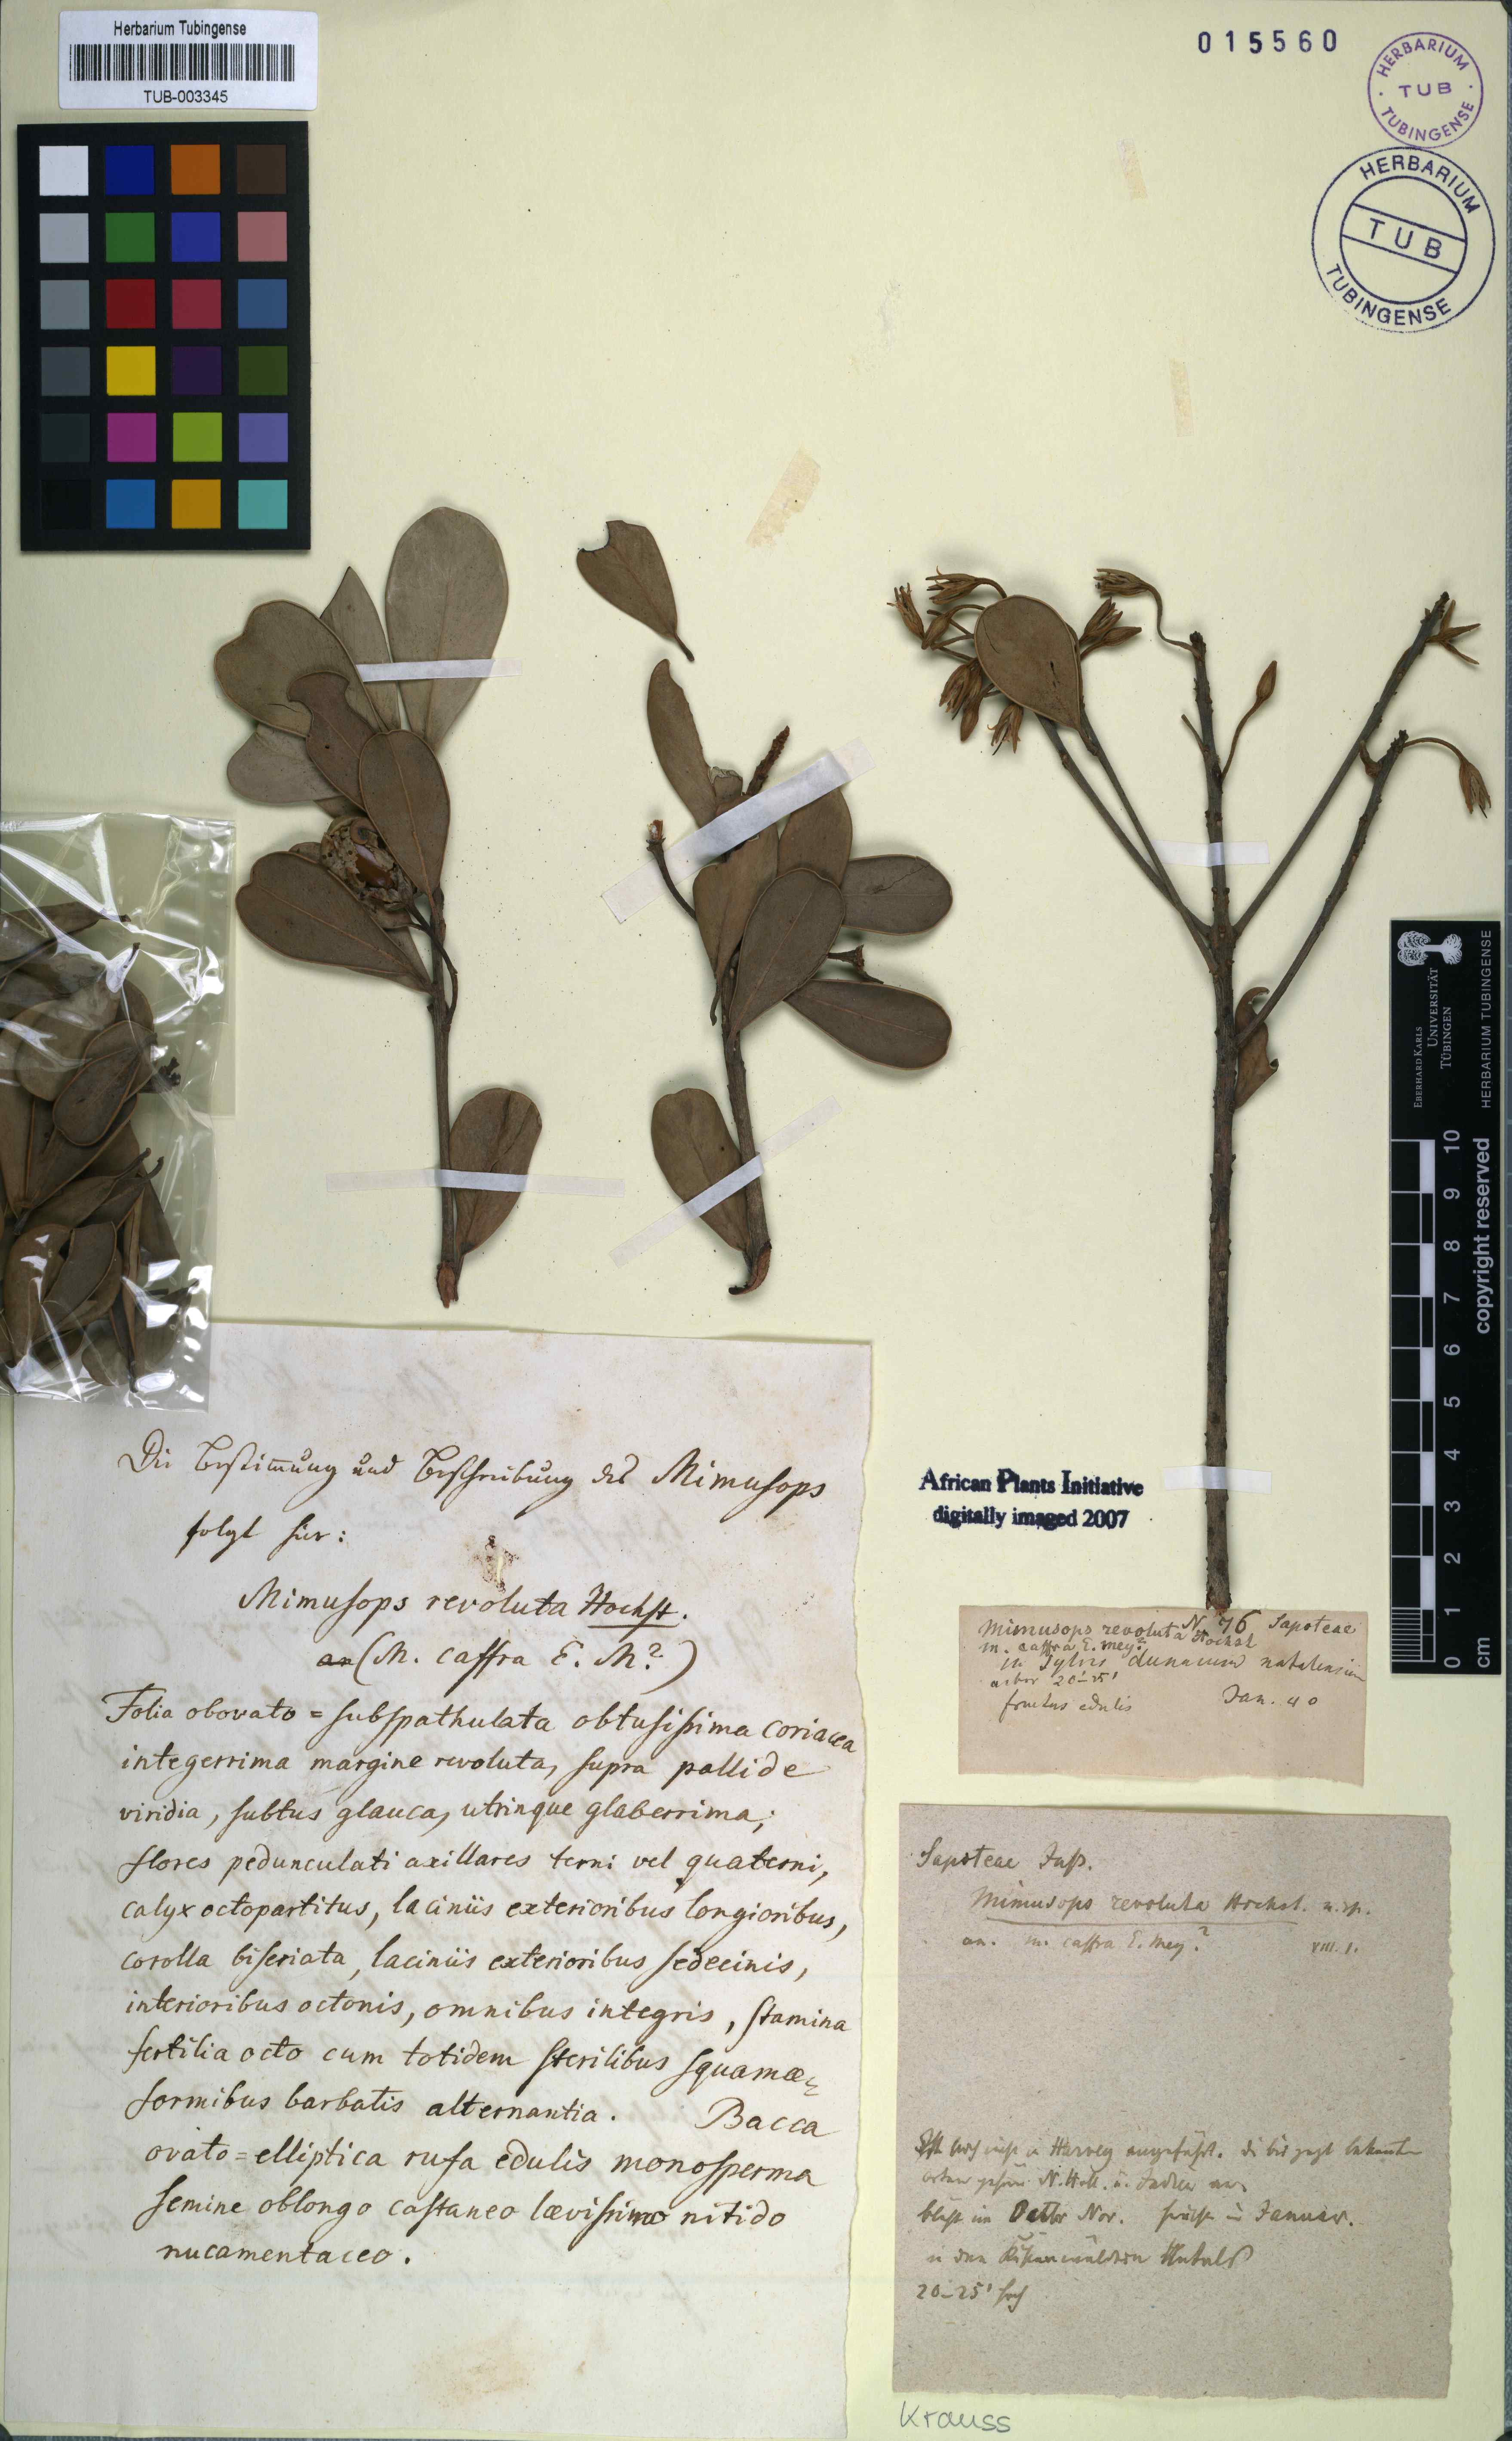 Herbarium Tubingense
TUB-003345
015560
HERBARIUM
TUB
TUBINGENSE
HERBARIUM
TUB
TUBINGENSE
EBERHARD KARLS
UNIVERSITÄT
TÜBINGEN
HERBARIUM TUBINGENSE
copyright reserved
0 1 2 3 4 5 6 7 8 9 10
cm
African Plants Initiative
digitally imaged 2007
Die Bestimmung und Beschreibung des Mimusops
folgt hier:
Mimusops revoluta Hochst.
an (M. caffra E. M?)
Folia obovato = subspathulata obtusissima coriacea
integerrima margine revoluta, supra pallide
viridia, subtus glauca, utrinque glaberrima;
flores pedunculati axillares terni vel quaterni,
calyx octopartitus, laciniis exterioribus longioribus,
corolla biseriata, laciniis exterioribus sedecinis,
interioribus octonis, omnibus integris, stamina
fertilia octo cum totidem sterilibus squamae=
formibus barbatis alternantia. Bacca
ovato = elliptica rufa edulis monosperma
semine oblongo castaneo lævissimo nitido
nucamentaceo.
Mimusops revoluta Hochst N. 76 Sapoteae
m. caffra E. mey?
in Sylvis dunarum natalensium
arbor 20-25'
fructus edulis Jan. 40
Sapoteae Juss.
Mimusops revoluta Hochst. n. sp.
an. m. caffra E. Mey.? VIII. 1.
Harvey angeführt. bis jetzt
N. Holl. u.
blüht im Octbr Nov. Januar.
in den Natals
20-25' hoch
Krauss